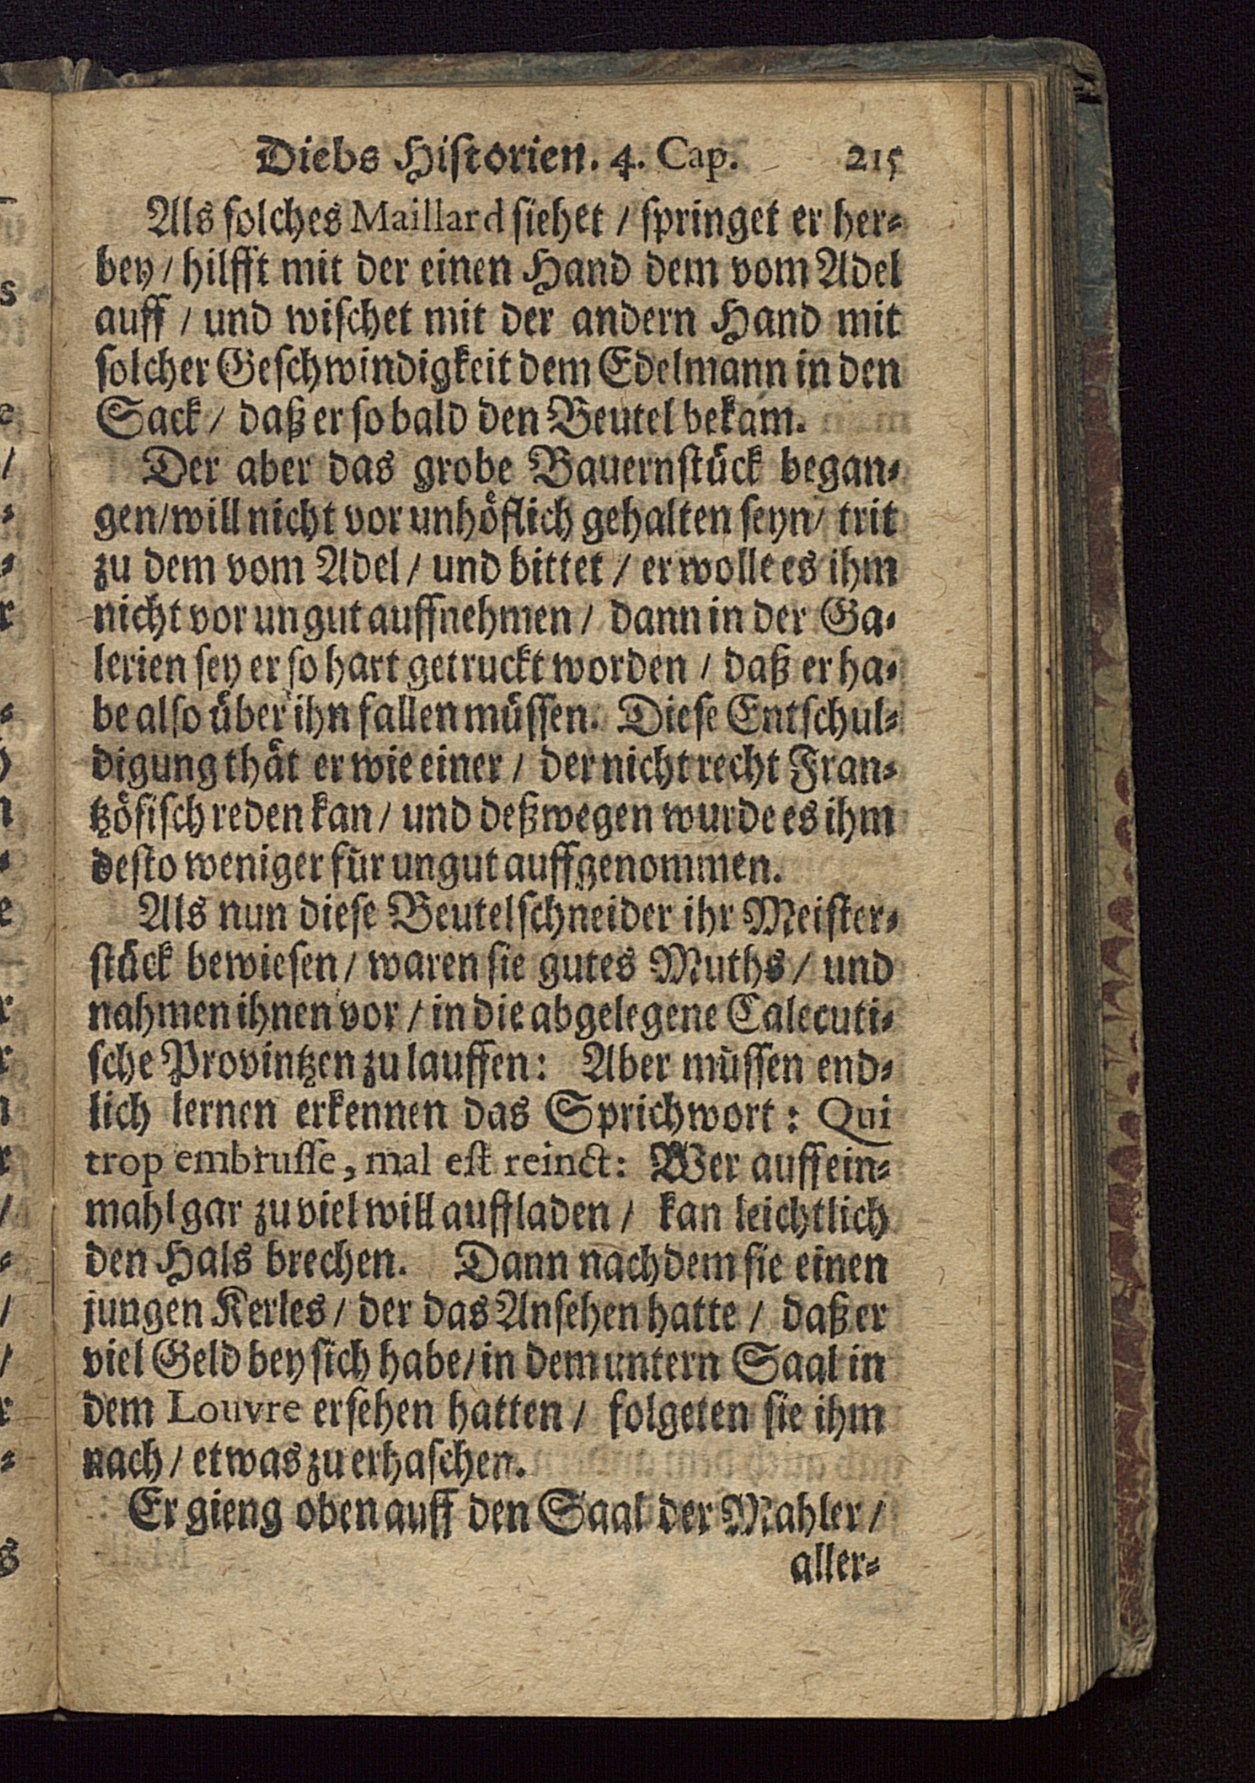 Diebs Historien. 4. Cap. 215
Als solches Maillard siehet / springet er her⸗
bey / hilfft mit der einen Hand dem vom Adel
auff / und wischet mit der andern Hand mit
solcher Geschwindigkeit dem Edelmann in den
Sack / daß er so bald den Beutel bekam.
Der aber das grobe Bauernstück began⸗
gen / will nicht vor unhöflich gehalten seyn / trit
zu dem vom Adel / und bittet / er wolle es ihm
nicht vor ungut auffnehmen / dann in der Ga⸗
lerien sey er so hart getruckt worden / daß er ha⸗
be also über ihn fallen müssen. Diese Entschul⸗
digung thät er wie einer / der nicht recht Fran⸗
tzösisch reden kan / und deßwegen wurde es ihm
desto weniger für ungut auffgenommen.
Als nun diese Beutelschneider ihr Meister⸗
stück bewiesen / waren sie gutes Muths / und
nahmen ihnen vor / in die abgelegene Calecuti⸗
sche Provintzen zu lauffen: Aber müssen end⸗
lich lernen erkennen das Sprichwort: Qui
trop embrusse, mal est reinct: Wer auff ein⸗
mahl gar zu viel will auffladen / kan leichtlich
den Hals brechen. Dann nachdem sie einen
jungen Kerles / der das Ansehen hatte / daß er
viel Geld bey sich habe / in dem untern Saal in
dem Louvre ersehen hatten / folgeten sie ihm
nach / etwas zu erhaschen.
Er gieng oben auff den Saal der Mahler /
aller⸗